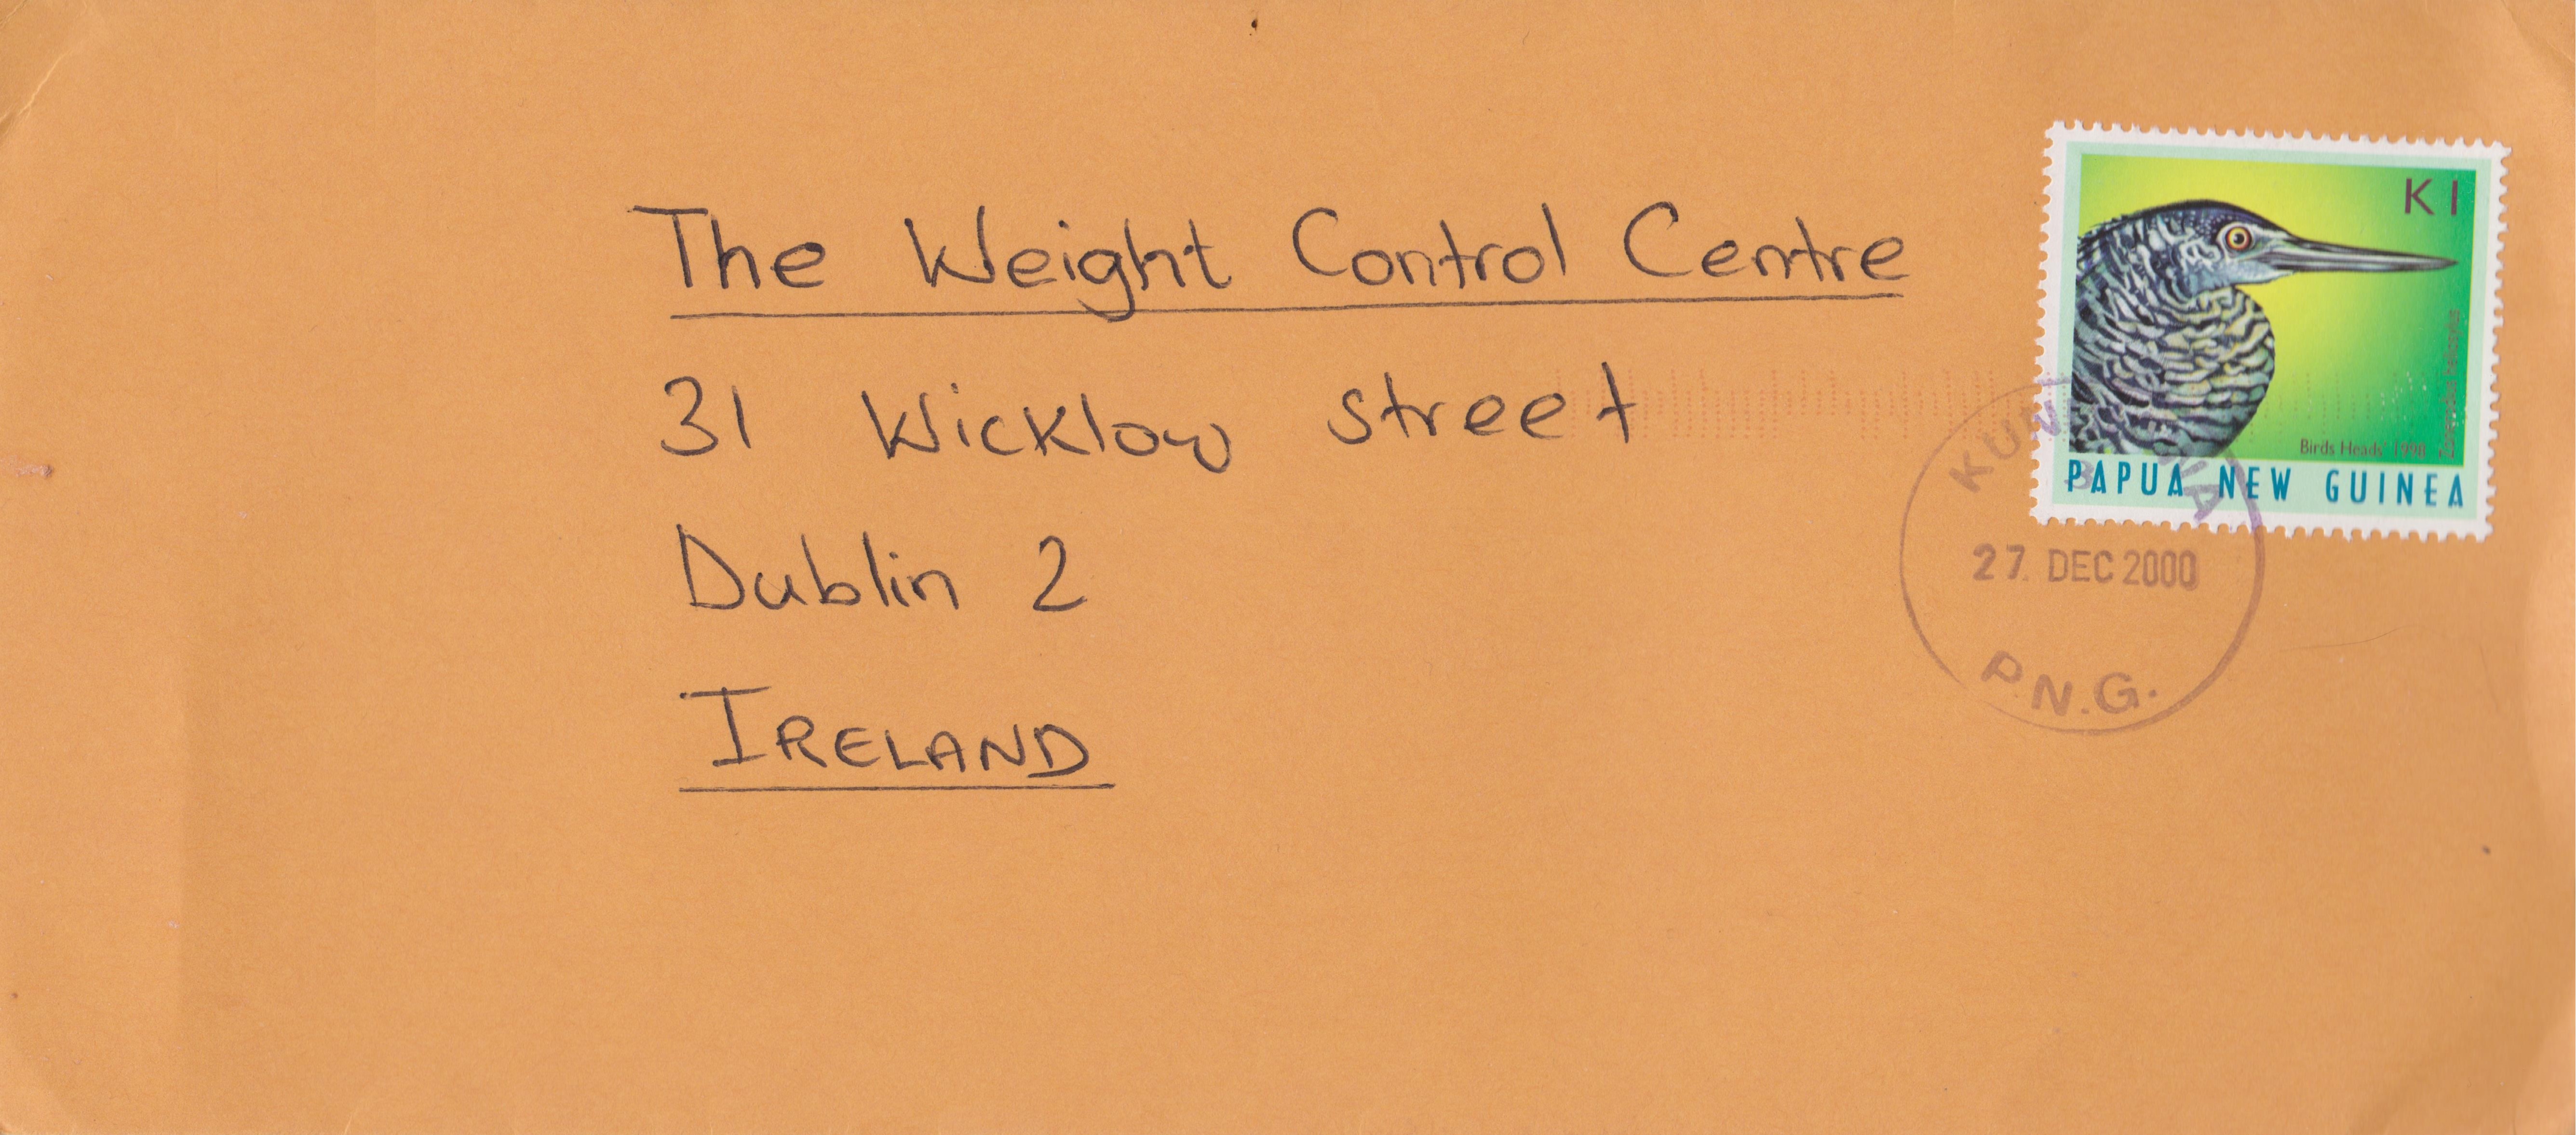 The Weight Control Centre
31 Wicklow street
Dublin 2
IRELAND
K1
Birds Heads' 1998
PAPUA NEW GUINEA
27. DEC 2000
P.N.G.